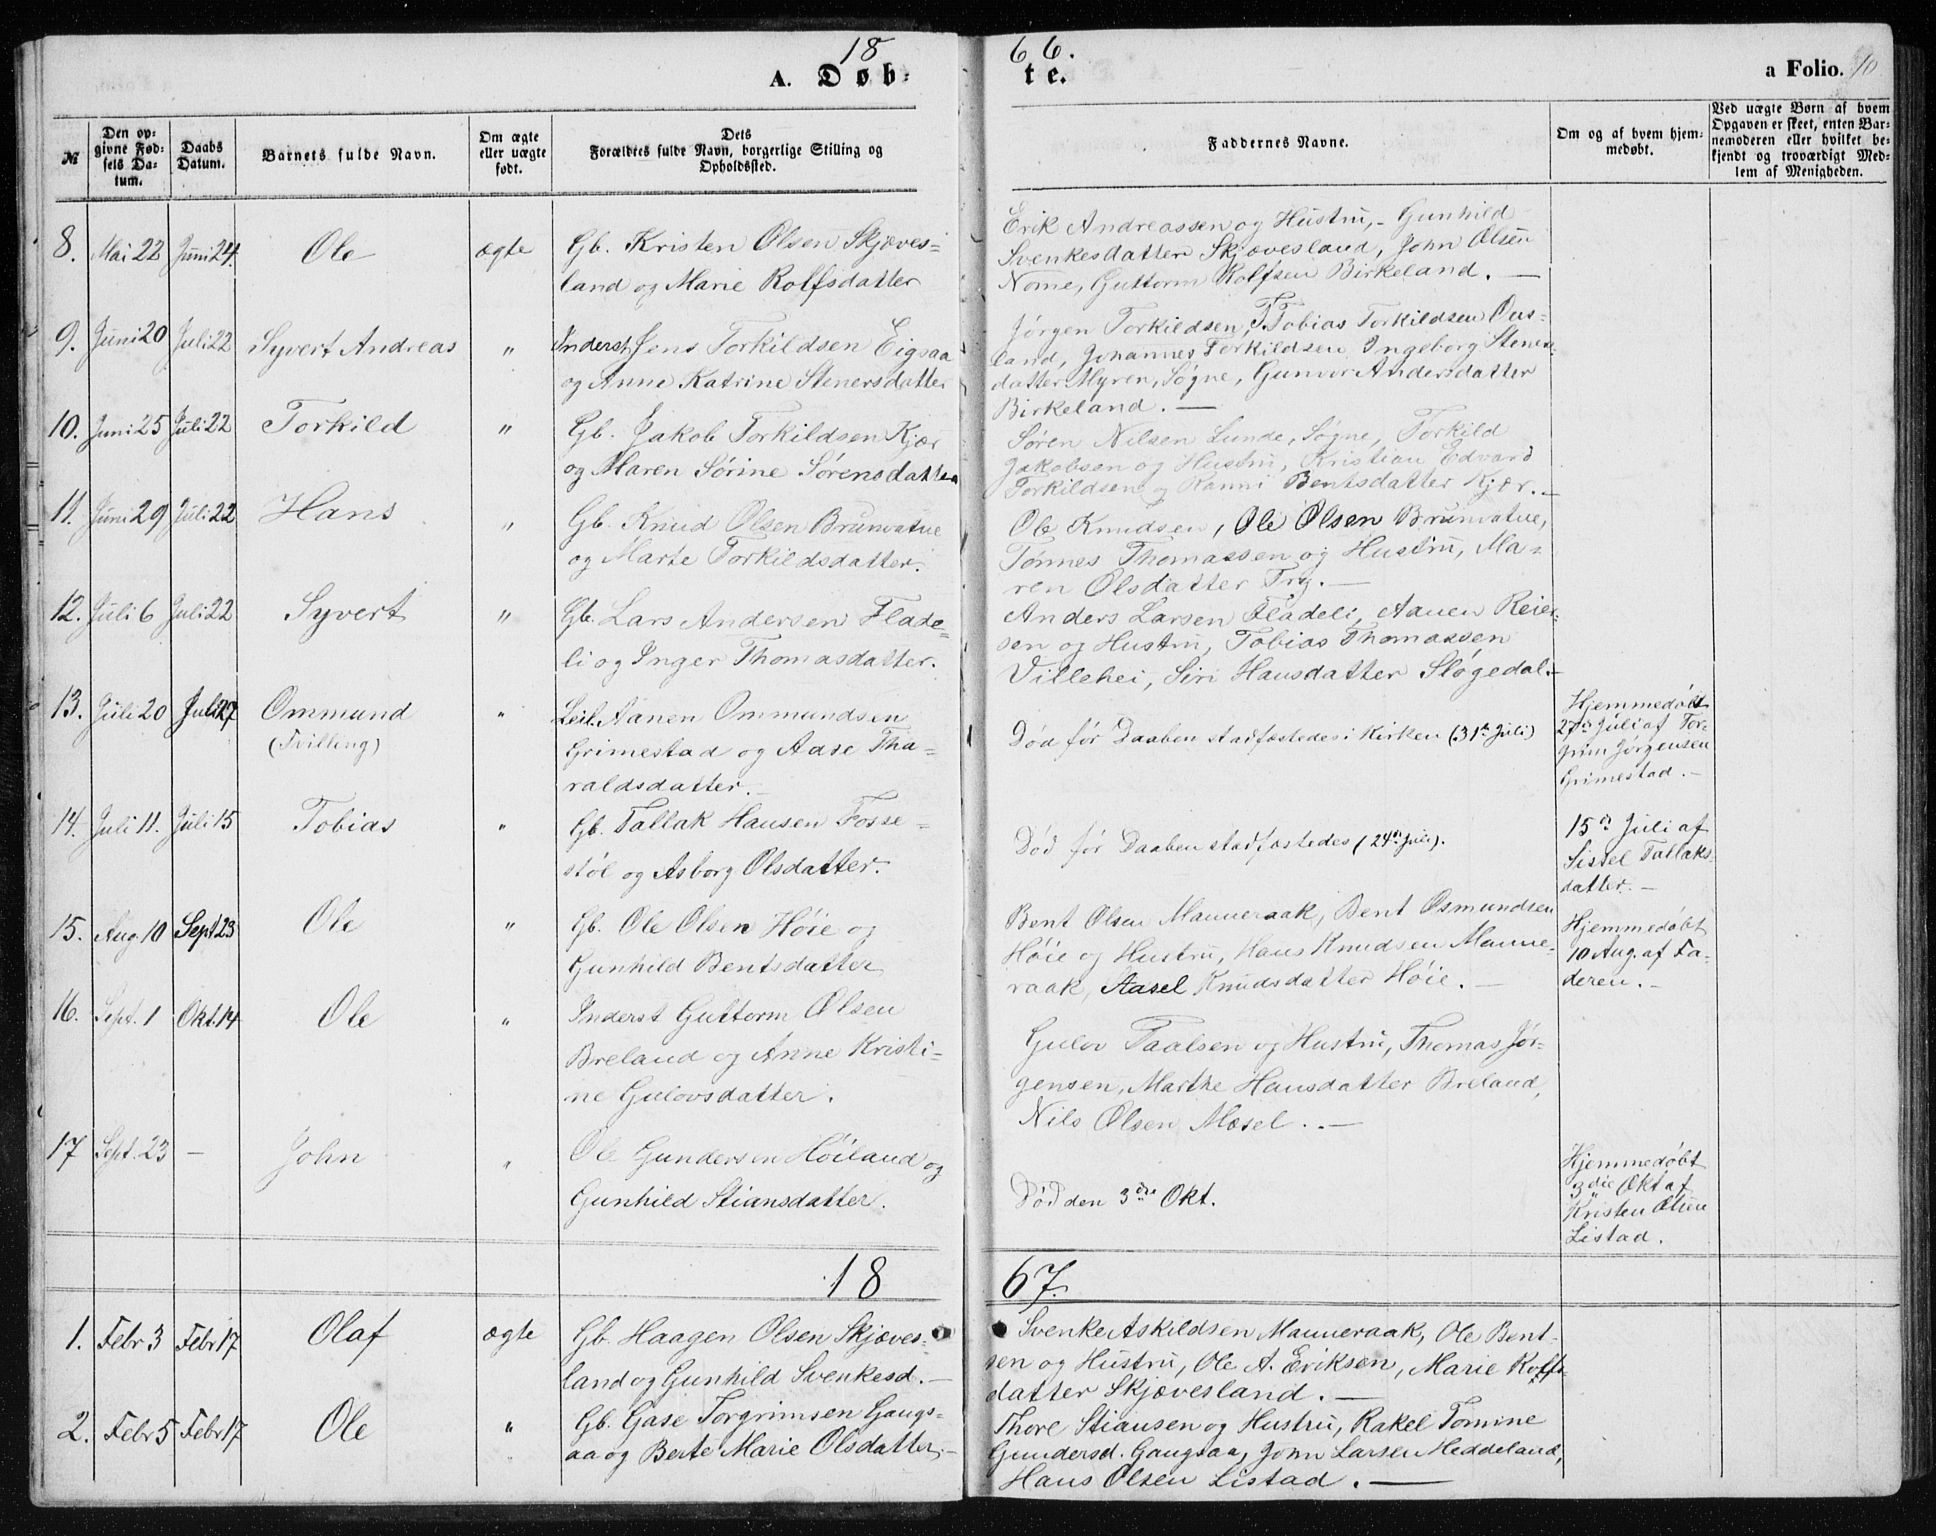 18
66.
A. Døb-
te.
a Folio. 10
№
Den op-
givne Fød-
sels Da-
tum.
Daabs
Datum.
Barnets fulde Navn.
Om ægte
eller uægte
født.
Dets
Forældres fulde Navn, borgerlige Stilling og
Opholdssted.
Faddernes Navne.
Om og af hvem hjem-
medøbt.
Ved uægte Børn af hvem
Opgaven er skeet, enten Bar-
nemoderen eller hvilket be-
kjendt og troværdigt Med-
lem af Menigheden.
8. Mai 22 Juni 24. Ole ægte
Gb. Kristen Olsen Skjæves-
land og Marie Rolfsdatter
Erik Andreassen og Hustru, - Gunhild
Svenkesdatter Skjævesland, John Olsen
Nome, Guttorm Rolfsen Birkeland. —
9. Juni 20 Juli 22 Syvert Andreas "
Inderst Jens Torkildsen Eigsaa
og Anne Katrine Stenersdatter
Jørgen Torkildsen, T. Tobias Torkildsen Ous-
land, Johannes Torkildsen, Ingeborg Steners-
datter Myren, Søgne, Gunvor Andersdatter
Birkeland. —
10. Juni 25 Juli 22 Torkild "
Gb. Jakob Torkildsen Kjær
og Maren Sørine Sørensdatter
Søren Nilsen Lunde, Søgne, Torkild
Jakobsen og Hustru, Kristian Edvard
Torkildsen og Ranni Bentsdatter Kjær. —
11. Juni 29 Juli 22 Hans "
Gb. Knud Olsen Brunvatne
og Marte Torkildsdatter.
Ole Knudsen, Ole Olsen Brunvatne,
Tønnes Thomassen og Hustru, Ma-
ren Olsdatter Try. —
12. Juli 6 Juli 22 Syvert "
Gb. Lars Andersen Flade-
li og Inger Thomasdatter.
Anders Larsen Fladeli, Aanen Reier-
sen og Hustru, Tobias Thomassen
Villehei, Siri Hansdatter Sløgedal. —
13. Juli 20 Juli 27 Ommund "
(Tvilling)
Leil. Aanen Ommundsen
Grimestad og Aase Tha-
raldsdatter. —
Død før Daaben stadfæstedes i Kirken (31te Juli)
Hjemmedøbt
27de Juli af Tor-
grim Jørgensen
Grimestad. —
14. Juli 11. Juli 15 Tobias "
Gb. Tallak Hansen Fosse-
støl og Asborg Olsdatter.
Død før Daaben stadfæstedes (24de Juli).
15de Juli af
Sissel Tallaks-
datter. —
15. Aug. 10 Sept 23 Ole "
Gb. Ole Olsen Høie og
Gunhild Bentsdatter
Bent Olsen Manneraak, Bent Osmundsen
Høie og Hustru, Hans Knudsen Manne-
raak, Aasel Knudsdatter Høie. —
Hjemmedøbt
10 Aug. af Fa-
deren. —
16. Sept. 1 Okt. 14 Ole "
Inderst Guttorm Olsen
Breland og Anne Kristi-
ne Gulovsdatter.
Gulov Taalsen og Hustru, Thomas Jør-
gensen, Marthe Hansdatter Breland,
Nils Olsen Mosel. . —
17 Sept. 23 — John "
Ole Gundersen Høiland og
Gunhild Stiansdatter.
Død den 3die Okt.
Hjemmedøbt
3die Okt af
Kristen Olsen
Listad.
18
67.
1. Febr 3 Febr 17 Olaf ægte
Gb. Haagen Olsen Skjæves-
land og Gunhild Svenkesd. —
Svenke Askildsen Manneraak, Ole Bent-
sen og Hustru, Ole A. Eriksen, Marie Rolfs-
datter Skjævesland. —
2. Febr 5 Febr 17 Ole "
Gb. Gase Torgrimsen Gangs-
aa og Berte Marie Olsdatter. —
Thore Stiansen og Hustru, Rakel Tomine
Gundersd. Gangsaa, John Larsen Meddeland,
Hans Olsen Listad. —